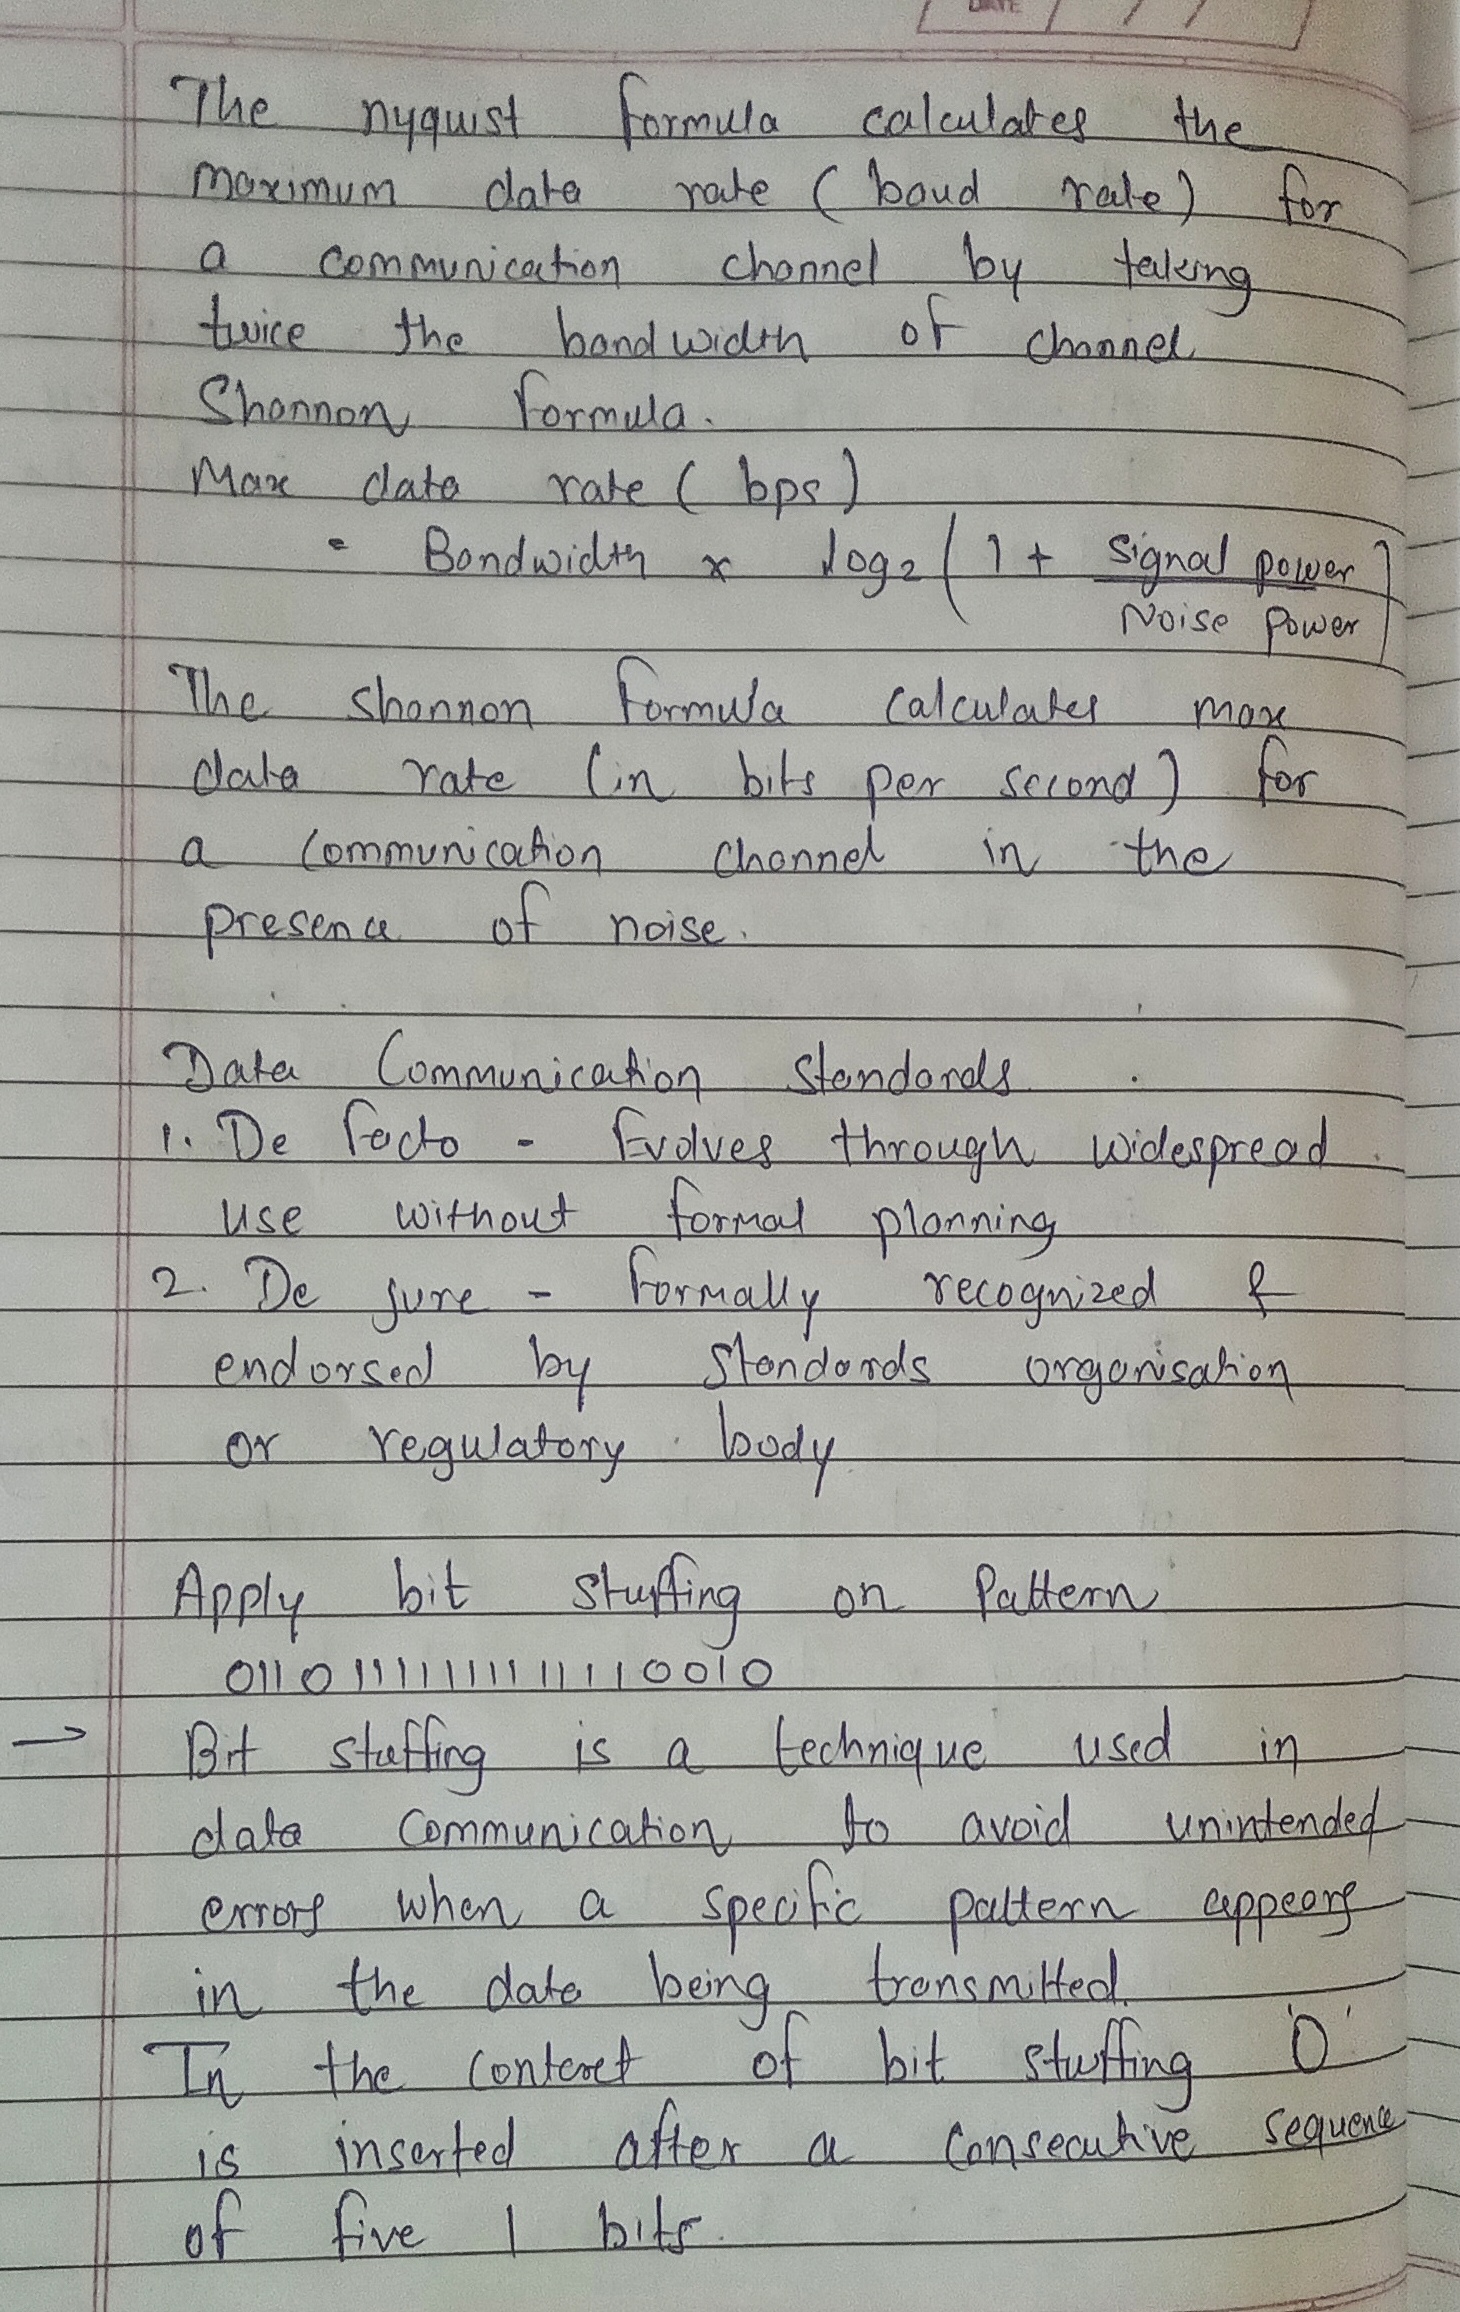 DATE / /
The nyquist formula calculates the
maximum data rate ( baud rate) for
a communication channel by taking
twice the bandwidth of channel
Shannon formula.
Max data rate ( bps)
= Bandwidth x log2 ( 1 + Signal power
Noise Power )
The shannon formula calculates max
data rate (in bits per second) for
a communication channel in the
presence of noise.
Data Communication Standards
1. De facto - Evolves through widespread
use without formal planning
2. De jure - formally recognized &
endorsed by Standards organisation
or regulatory body
Apply bit stuffing on Pattern
Bit stuffing is a technique used in
data communication to avoid unintended
errors when a specific pattern appears
in the data being transmitted.
In the context of bit stuffing '0'
is inserted after a consecutive sequence
of five 1 bits.